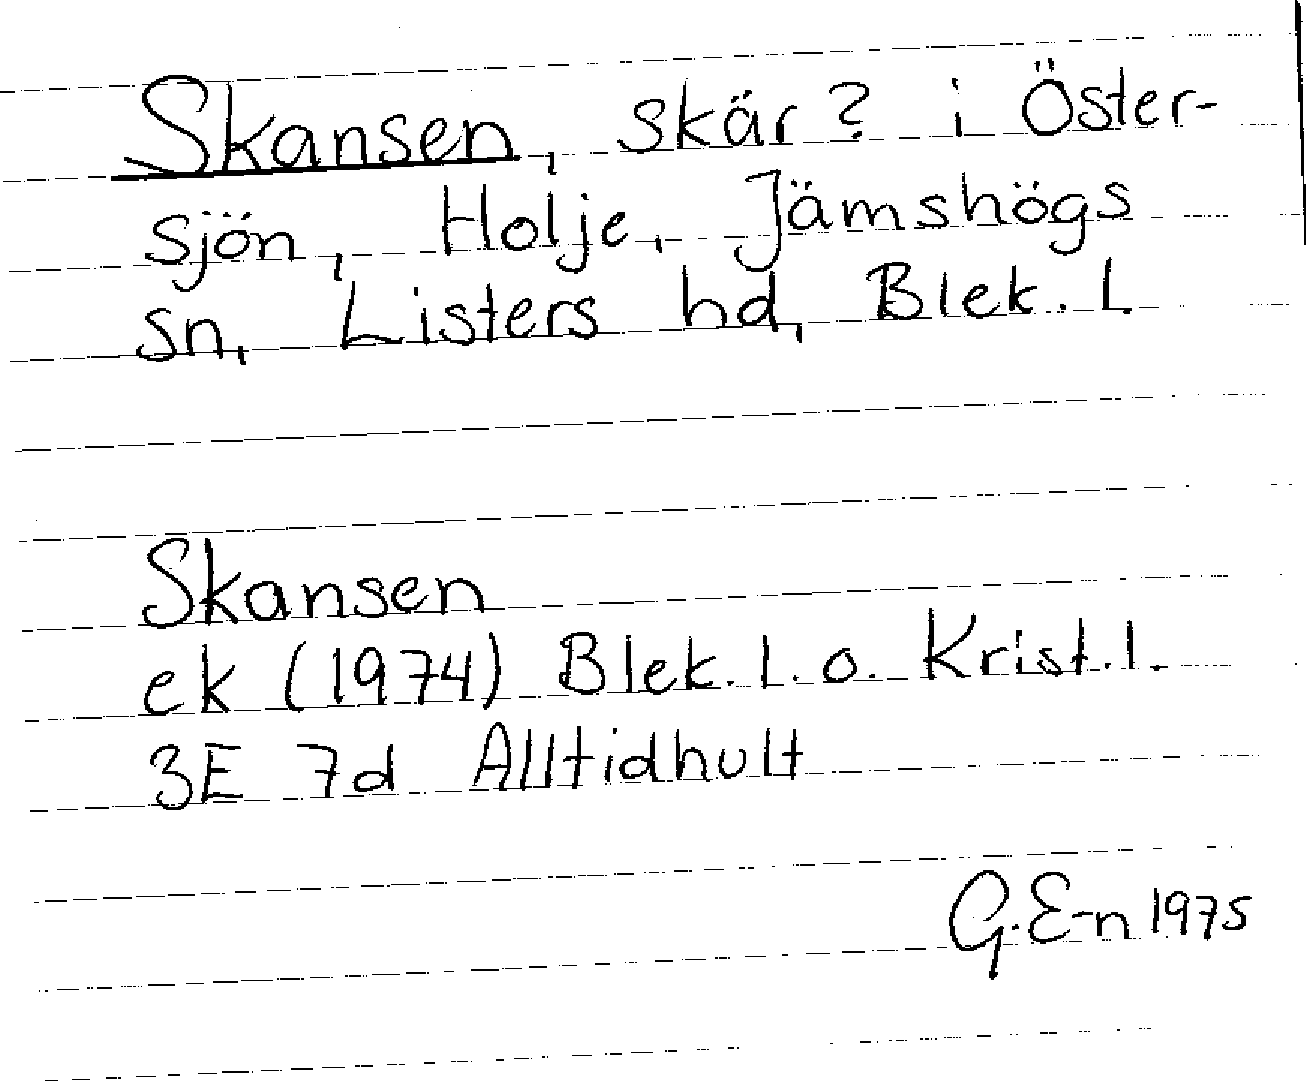 Skansen, skär? i Öster-
sjön, Holje, Jämshögs
sn, Listers hd, Blek. l.
Skansen
ek (1974) Blek. l. o. Krist. l.
3E 7d Alltidhult
G. E-n 1975